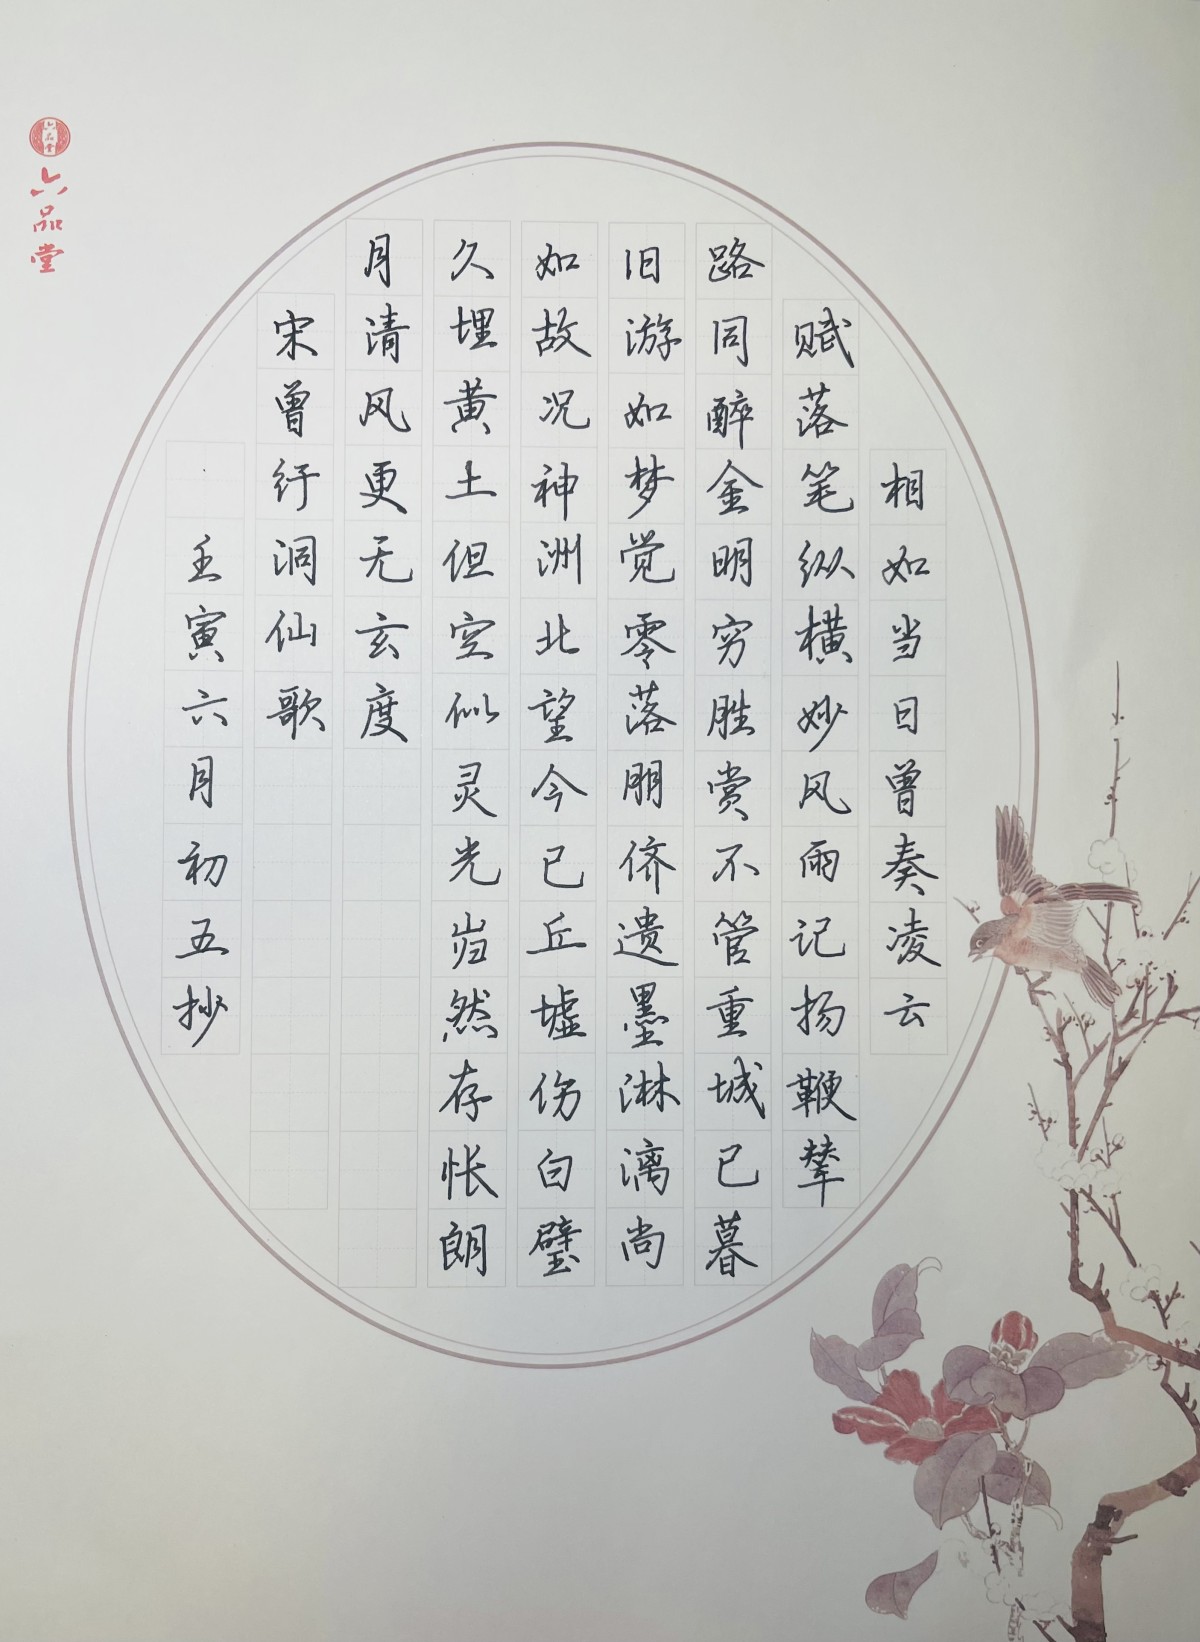 相如当日曾奏凌云
赋落笔纵横妙风雨记扬鞭辇
路同醉金明穷胜赏不管重城已暮
旧游如梦觉零落朋侪遗墨淋漓尚
如故况神洲北望今已丘墟伤白璧
久埋黄土但空似灵光岿然存怅朗
月清风更无玄度
宋曾纡洞仙歌
壬寅六月初五抄
六品堂
六品堂